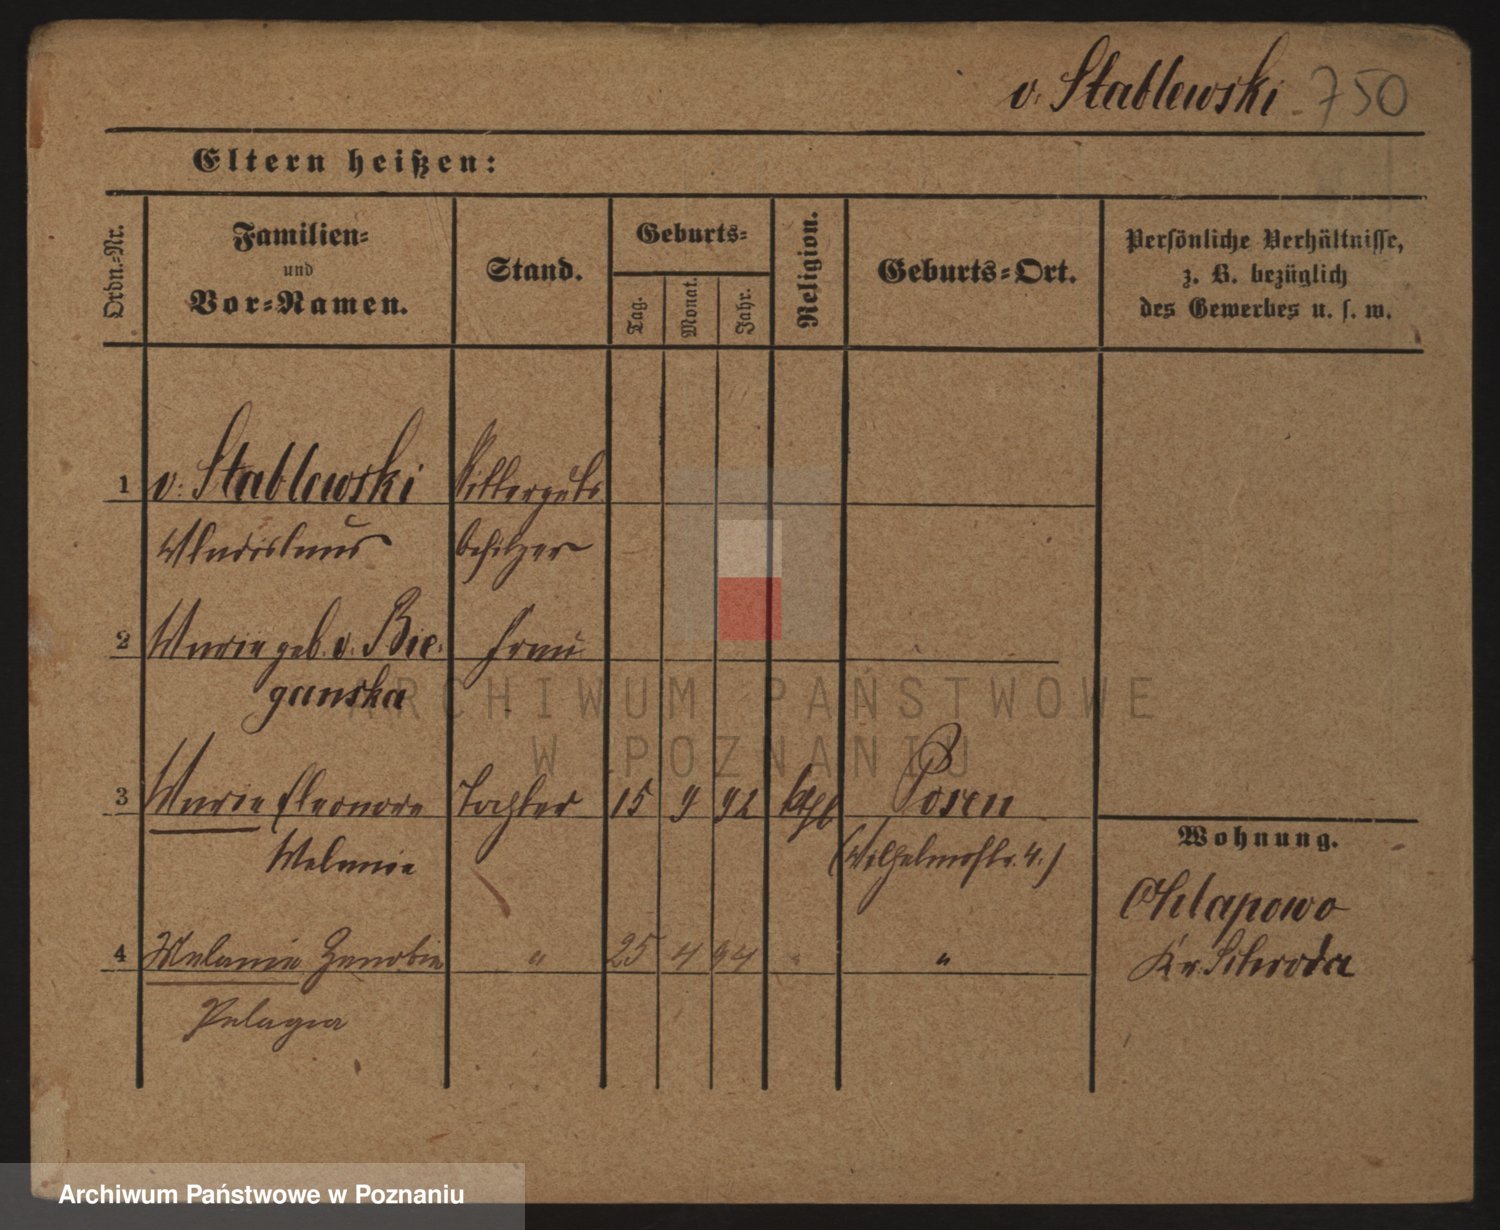 v. Stablewski 750
Eltern heißen:
Ordn.-Nr.
Familien-
und
Vor-Namen.
Stand.
Geburts-
Tag.
Monat.
Jahr.
Religion.
Geburts-Ort.
Persönliche Verhältnisse,
z. B. bezüglich
des Gewerbes u. s. w.
1 v. Stablewski Ritterguts
Wladislaus besitzer
2 Marie geb. v. Bie- Frau
ganska
3 Marie Eleonore Tochter 15 9 92 kath Posen
Melanie (Wilhelmstr. 4.)
4 Melanie Zenobia " 25 4 94 " "
Pelagia
Wohnung.
Chlapowo
Kr. Schroda
ARCHIWUM PAŃSTWOWE
W POZNANIU
Archiwum Państwowe w Poznaniu